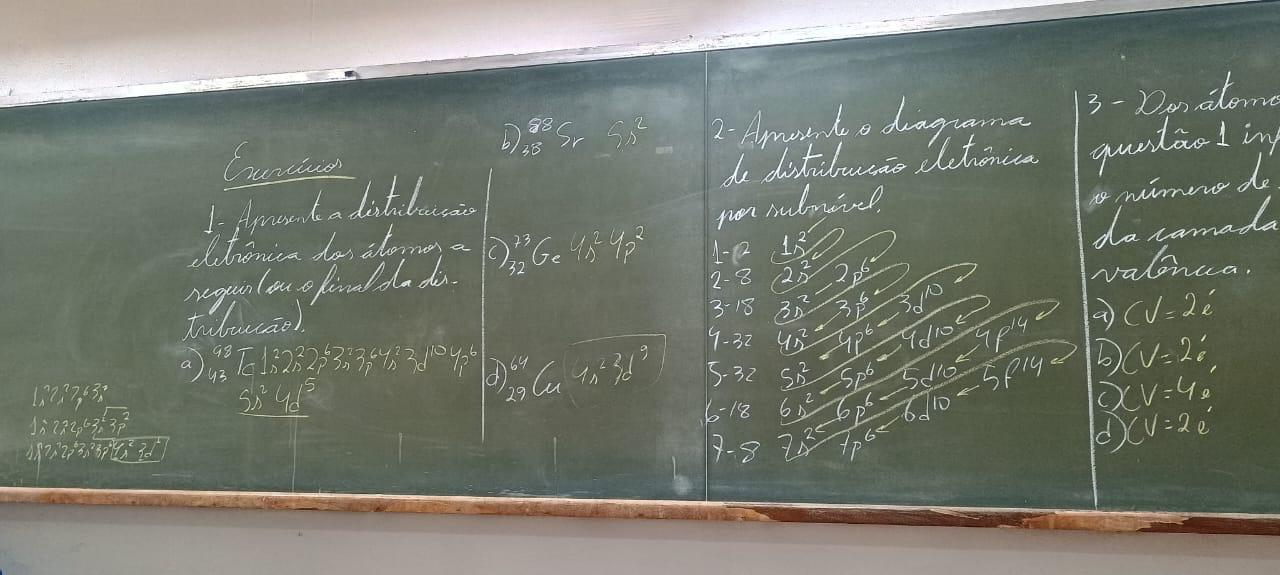 Exercícios
1- Apresente a distribuição
eletrônica dos átomos a
seguir (ou o final da dis-
tribuição).
a) ⁹⁸₄₃Tc 1s² 2s² 2p⁶ 3s² 3p⁶ 4s² 3d¹⁰ 4p⁶
5s² 4d⁵
1s² 2s² 2p⁶ 3s²
1s² 2s² 2p⁶ 3s² 3p²
1s² 2s² 2p⁶ 3s² 3p⁶ 4s² 3d
b) ⁸⁸₃₈Sr 5s²
c) ⁷³₃₂Ge 4s² 4p²
d) ⁶⁴₂₉Cu 4s² 3d⁹
2- Apresente o diagrama
de distribuição eletrônica
por subnível.
1-2 1s²
2-8 2s² 2p⁶
3-18 3s² 3p⁶ 3d¹⁰
4-32 4s² 4p⁶ 4d¹⁰ 4f¹⁴
5-32 5s² 5p⁶ 5d¹⁰ 5f¹⁴
6-18 6s² 6p⁶ 6d¹⁰
7-8 7s² 7p⁶
3- Dos átomo
questão 1 in
o número de
da camada
valência.
a) CV=2é
b) CV=2é
c) CV=4é
d) CV=2é